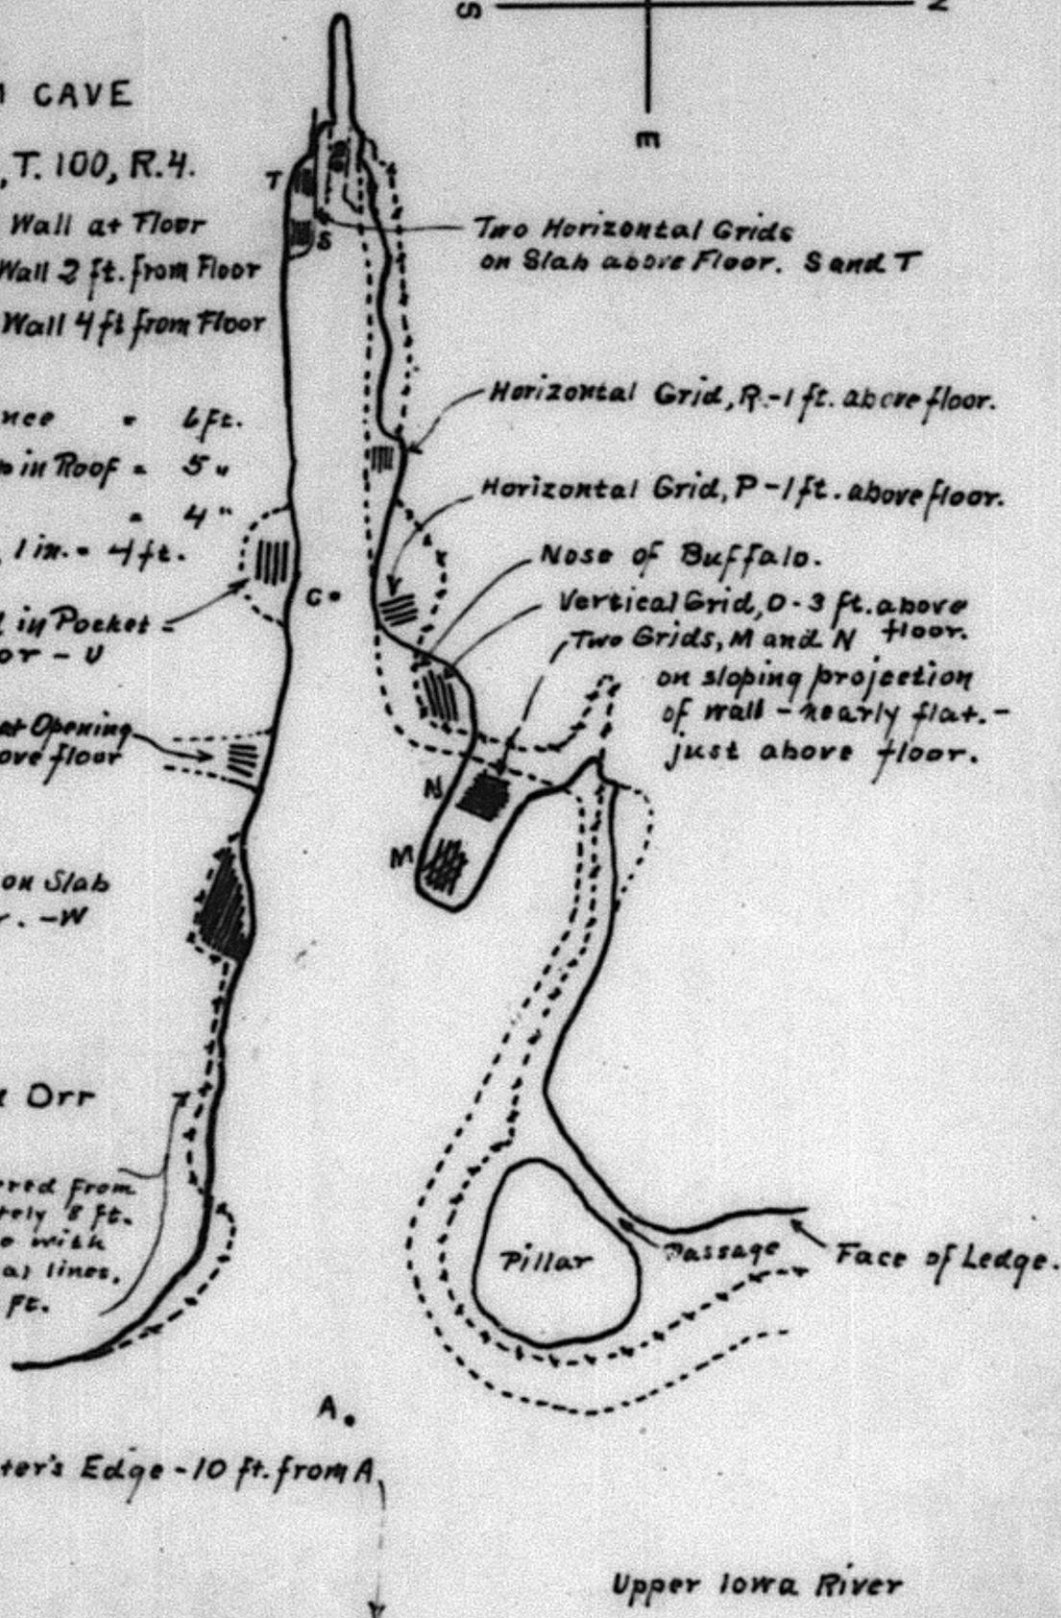 S
N
E
CAVE
, T. 100, R.4.
Wall at Floor
Wall 2 ft. from Floor
Wall 4 ft from Floor
= 6 ft.
in Roof = 5 "
= 4 "
1 in. = 4 ft.
in Pocket =
- U
at Opening
floor
on Slab
. - W
Orr
from
8 ft.
with
lines,
Ft.
T
S
Two Horizontal Grids
on Slab above Floor. S and T
Horizontal Grid, R.-1 ft. above floor.
Horizontal Grid, P-1 ft. above floor.
Nose of Buffalo.
Vertical Grid, O-3 ft. above
floor.
Two Grids, M and N
on sloping projection
of wall - nearly flat. -
just above floor.
C
N
M
Pillar
Passage
Face of Ledge.
A.
Edge - 10 ft. from A.
Upper Iowa River